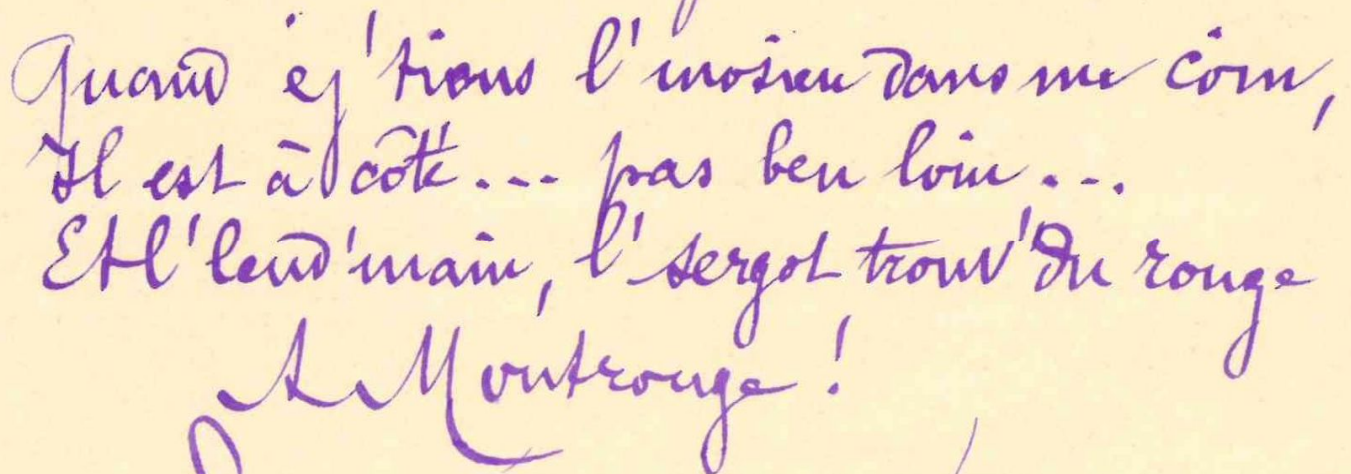 Quand ej' tiens l' mosieu dans me coin,
Il est à côté... pas ben loin...
Et l' lend'main, l' sergot trouv' du rouge
A Montrouge !